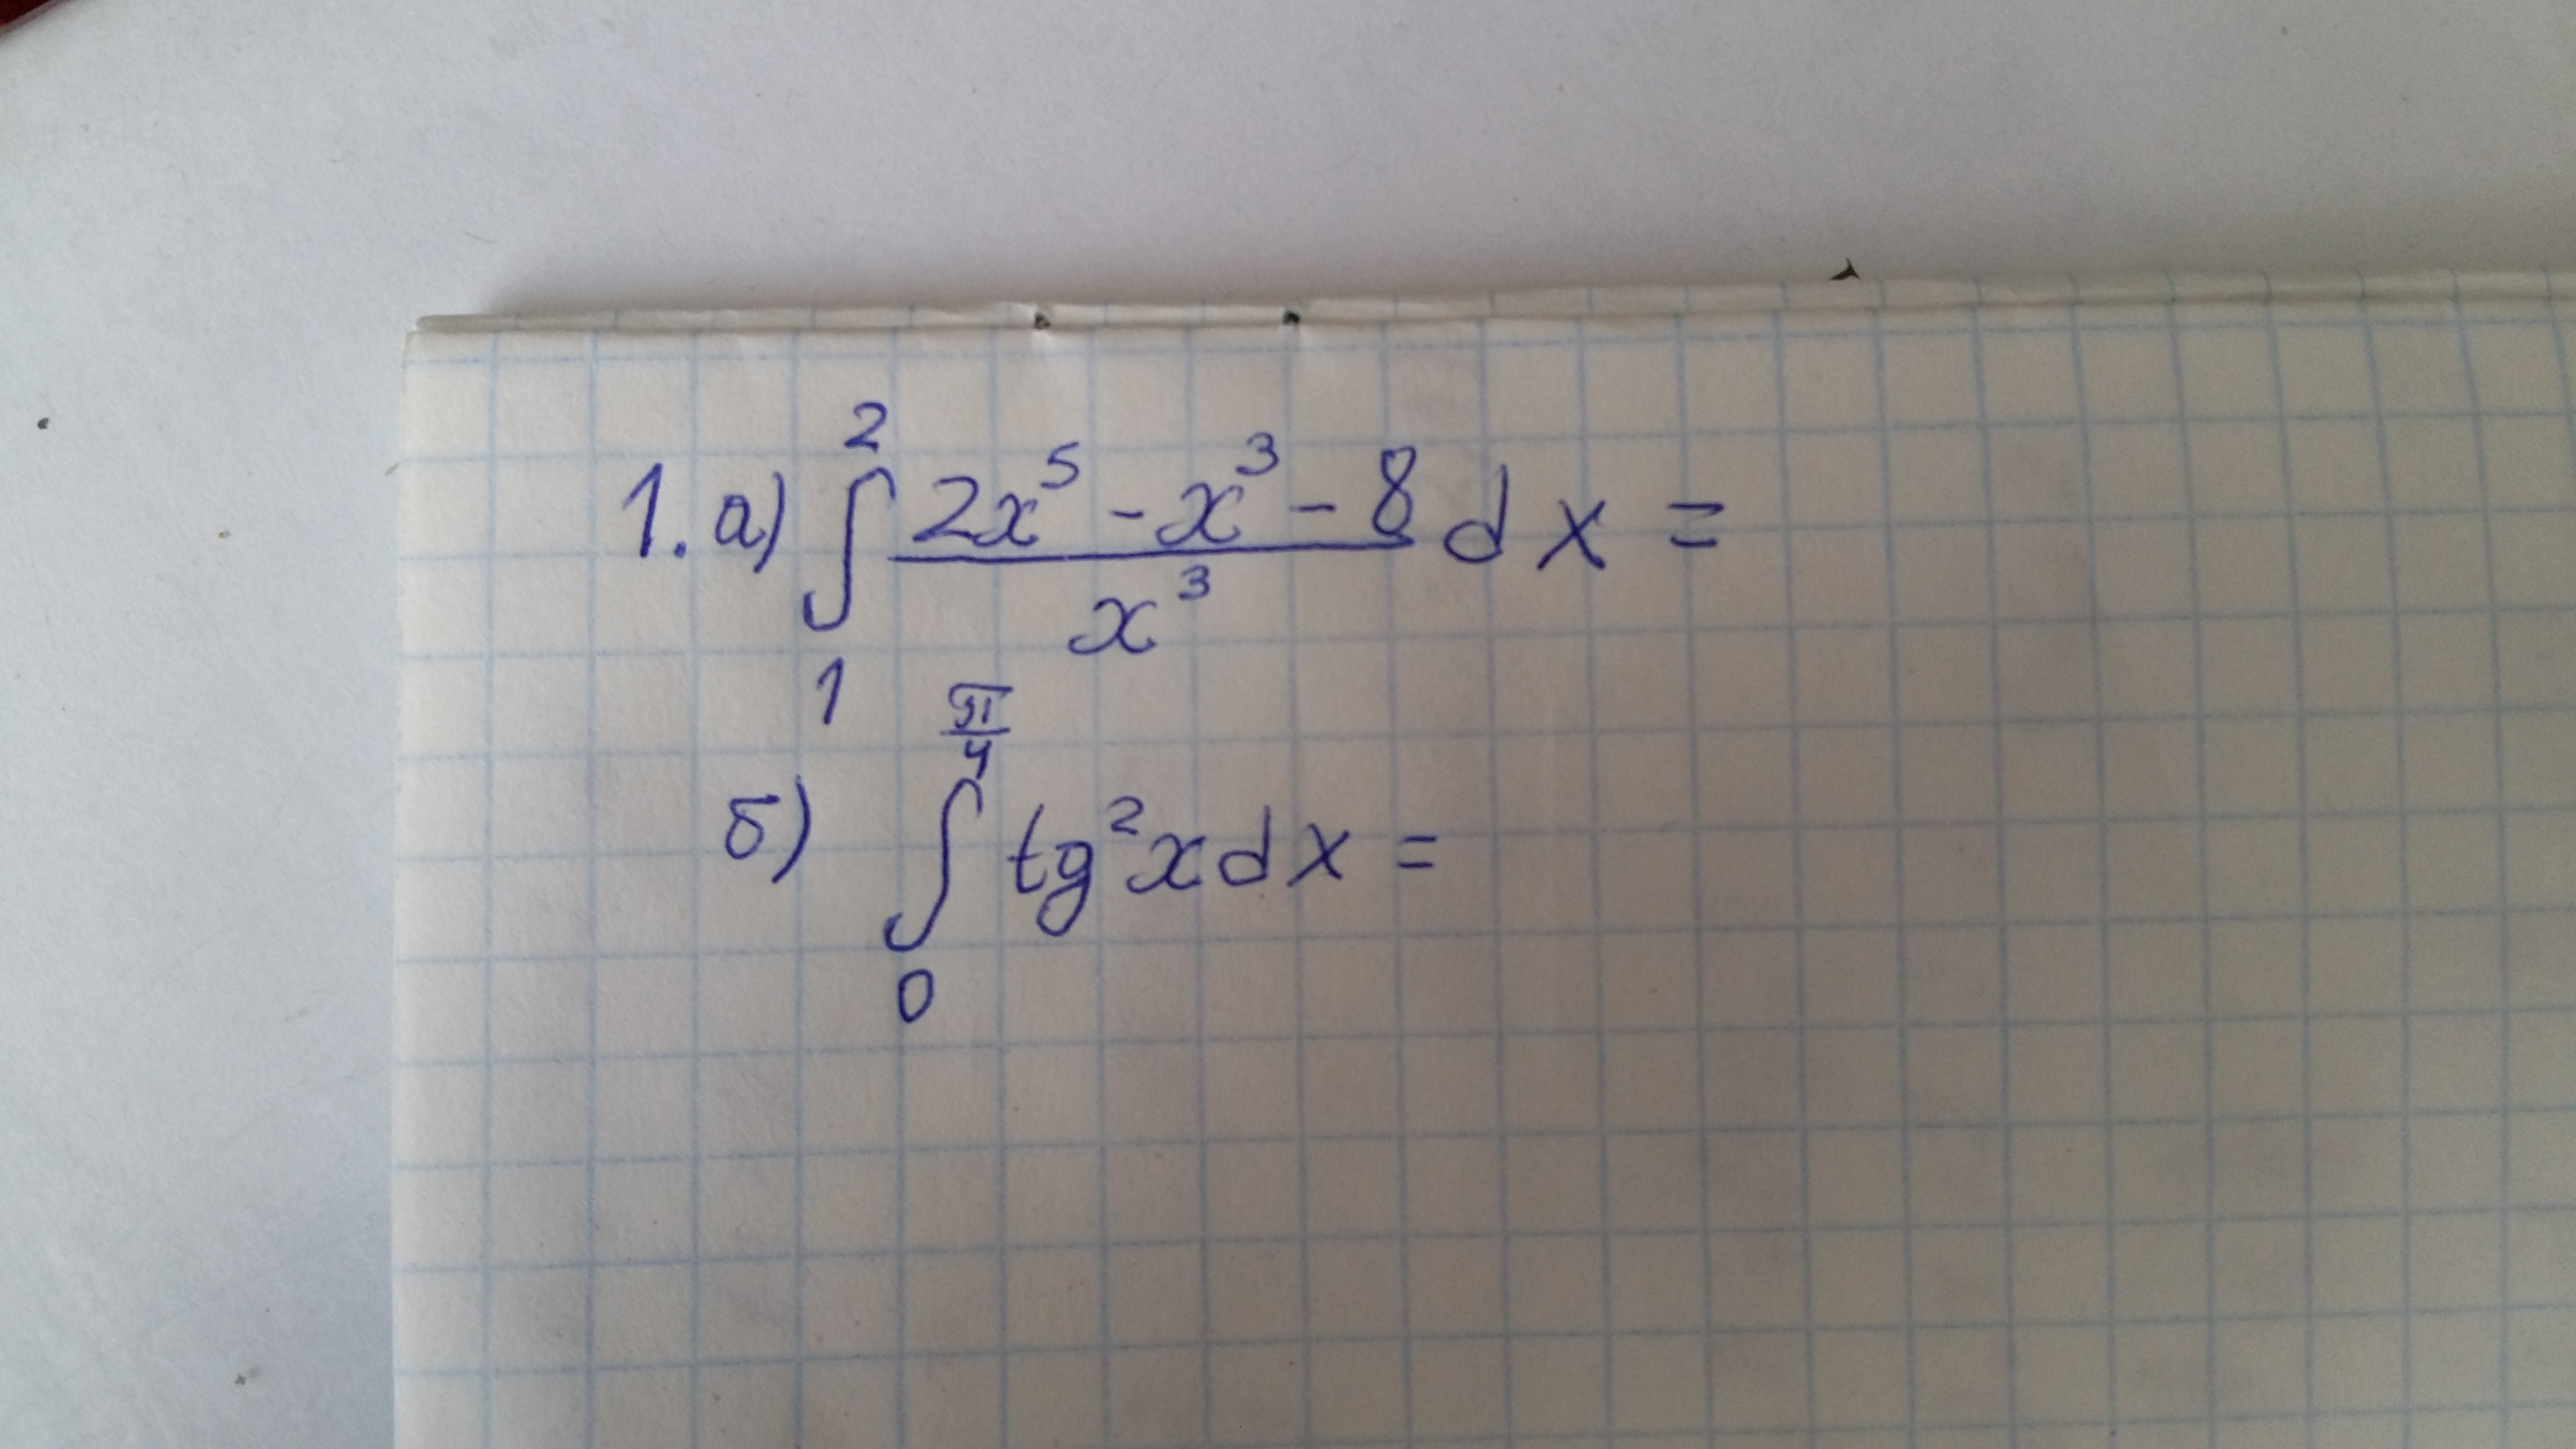 1. а) ∫₁² (2x⁵ - x³ - 8)/x³ dx =
б) ∫₀^(π/4) tg²x dx =